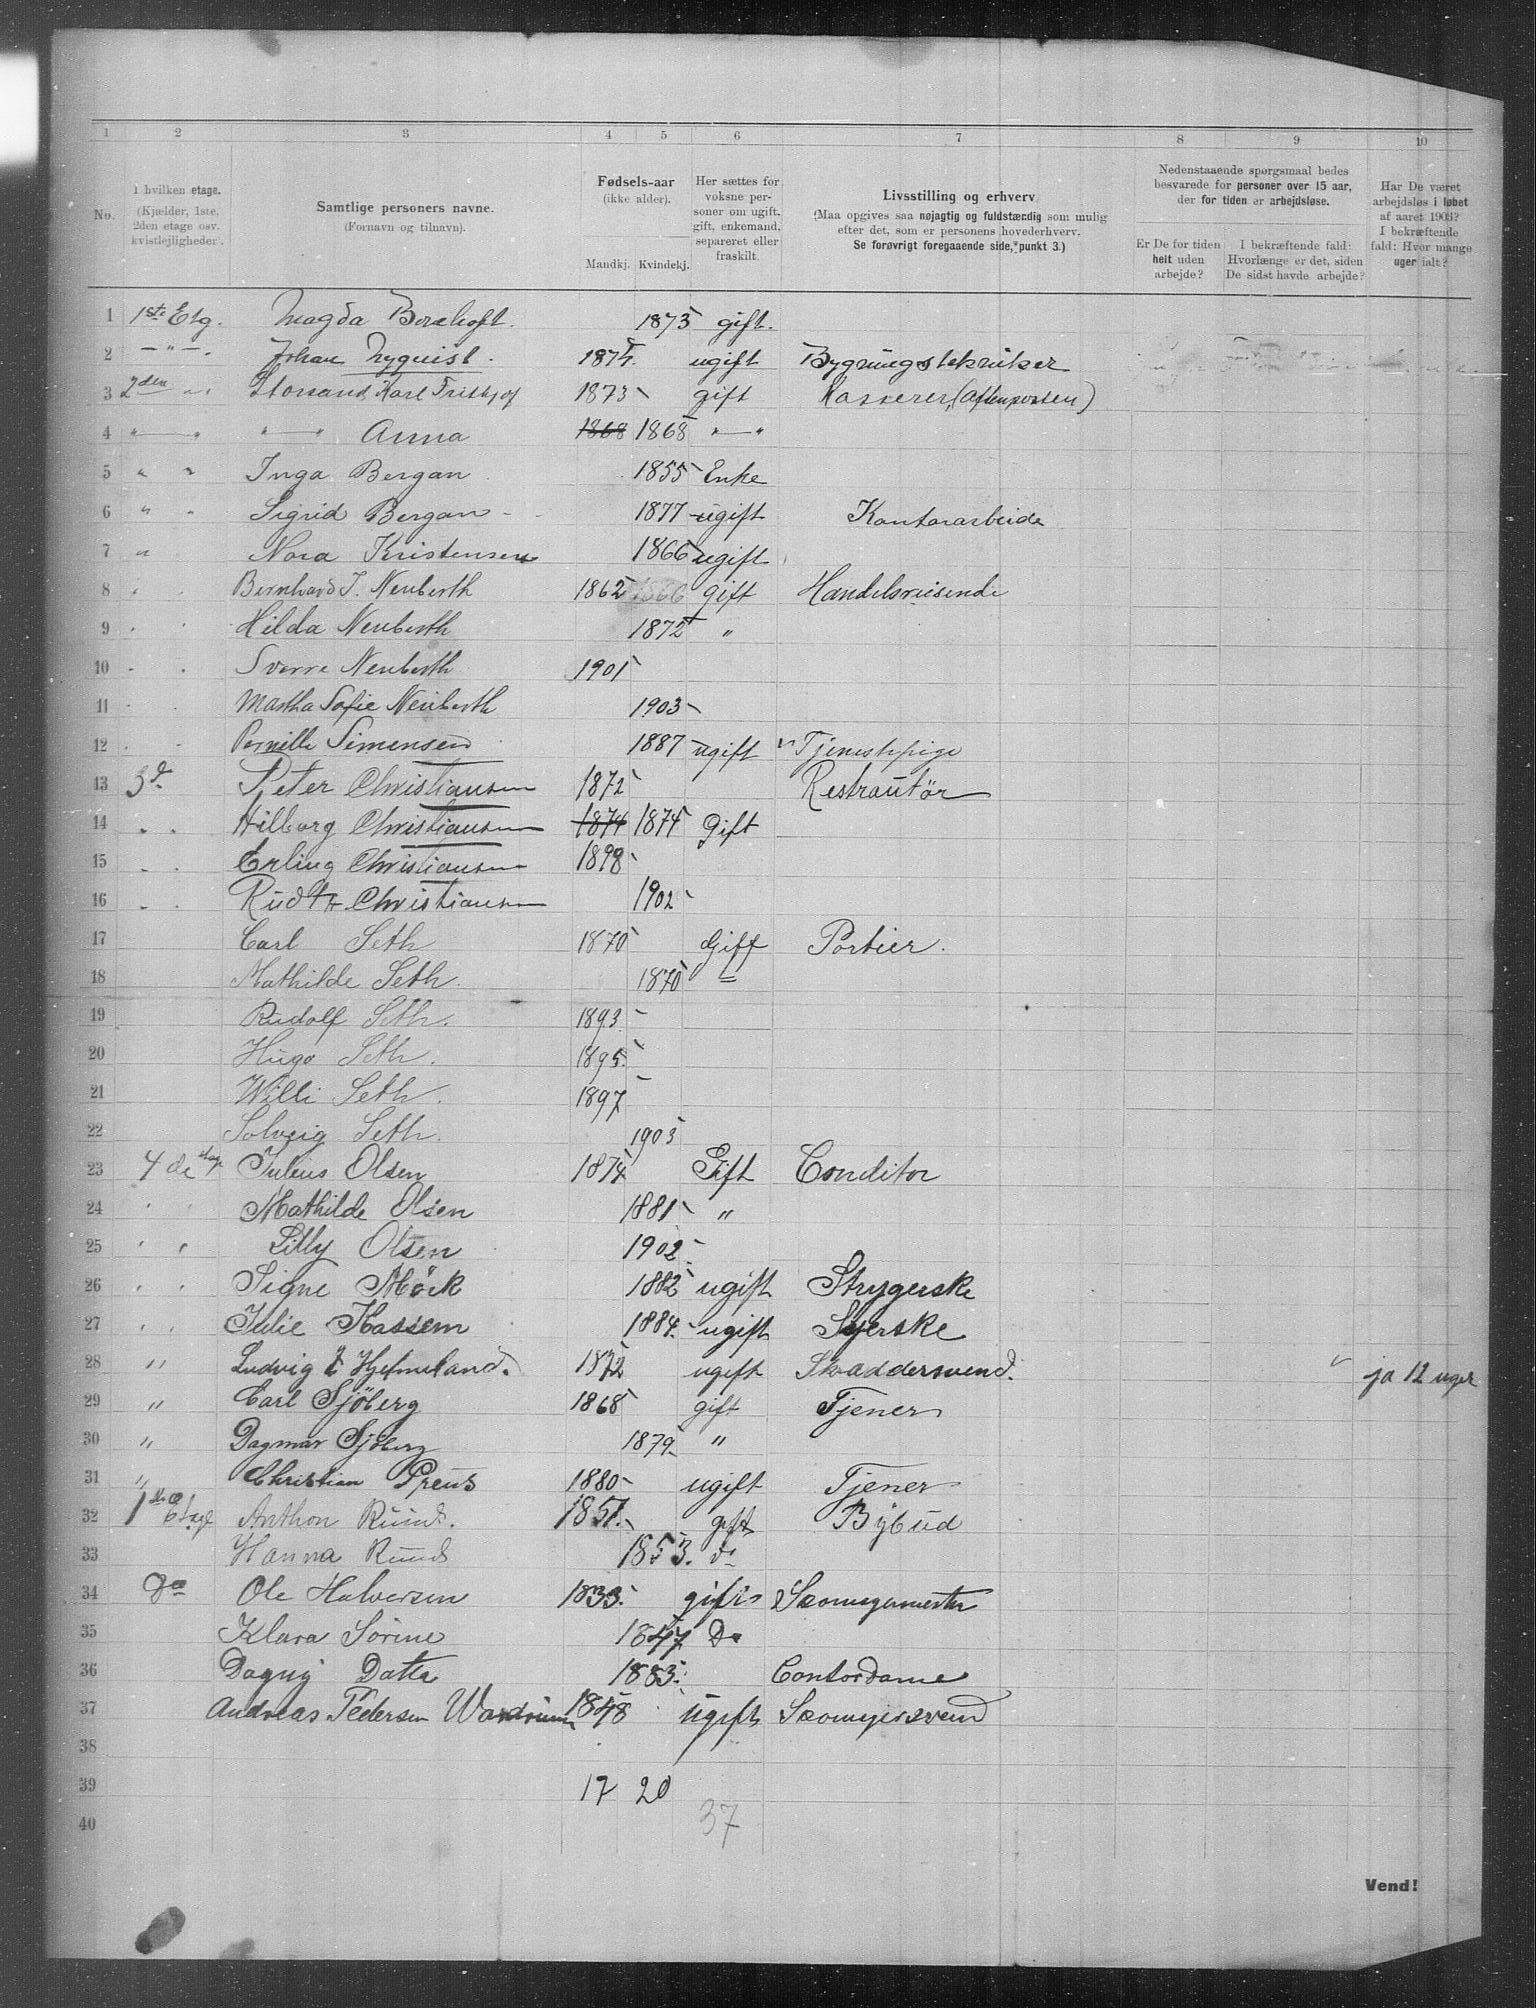 1 2 3 4 5 6 7 8 9 10
No.
I hvilken etage. (Kjælder, 1ste, 2den etage osv. kvistleiligheder).
Samtlige personers navne. (Fornavn og tilnavn).
Fødsels-aar (ikke alder). Mandkj. Kvindekj.
Her sættes for voksne personer om ugift, gift, enkemand, separeret eller fraskilt.
Livsstilling og erhverv (Maa opgives saa nøjagtig og fuldstændig som mulig efter det, som er personens hovederhverv. Se forøvrigt foregaaende side, punkt 3.)
Nedenstaaende spørgsmaal bedes besvarede for personer over 15 aar, der for tiden er arbejdsløse.
Er De for tiden helt uden arbejde?
I bekræftende fald: Hvorlænge er det, siden De sidst havde arbejde?
Har De været arbejdsløs i løbet af aaret 1903? I bekræftende fald: Hvor mange uger ialt?
1 1ste Etg. Magda Borchoft. 1873 gift.
2 — " — Johan Nyquist. 1874 ugift Bygningstekniker
3 2den " Storsand, Karl Fritjof 1873 gift Kasserer, (Aftenposten)
4 " — " " — " Anna 1868 1868 " — "
5 " " Inga Bergan 1855 Enke
6 " " Sigrid Bergan 1877 ugift Kontorarbeide
7 " Nora Kristensen 1866 ugift
8 " " Bernhard J. Neuberth 1862 1866 gift Handelsreisende
9 " " Hilda Neuberth 1872 "
10 " " Sverre Neuberth 1901
11 " " Martha Sofie Neuberth 1903
12 " " Pernille Simensen 1887 ugift Tjenestepige
13 3d. Peter Christiansen 1872 Restrautør
14 " " Hilborg Christiansen 1874 1874 Gift
15 " " Erling Christiansen 1898
16 " " Rudth Christiansen 1902
17 Carl Seth 1870 Gift Portier.
18 Mathilde Seth. 1870 =
19 Rudolf Seth. 1893
20 Hugo Seth. 1895.
21 Willi Seth. 1897
22 Solveig Seth. 1903
23 4 de etage Julius Olsen 1874 Gift Conditor
24 " " Mathilde Olsen 1881 "
25 " " Lilly Olsen 1902
26 " " Signe Mörk 1882 ugift Strygerske
27 " " Julie Hassem 1884. ugift Syerske
28 " Ludvig Hjelmeland. 1872 ugift Skraddersvend. ja 12 uger
29 " Carl Sjöberg 1868 gift Tjener
30 " Dagmar Sjöberg 1879 "
31 " Christian Preus 1880 ugift Tjener
32 1ste Etage Anthon Ruud. 1851. gift Bybud
33 Hanna Ruud 1853. do
34 Do Ole Halversen 1833. gift Skomagermester
35 Klara Sørine 1847 Do
36 Dagny Datter 1883. Contordame
37 Andreas Pedersen 1848 Ugift Skomagersvend
38
39 17 20
40 37
Vend!